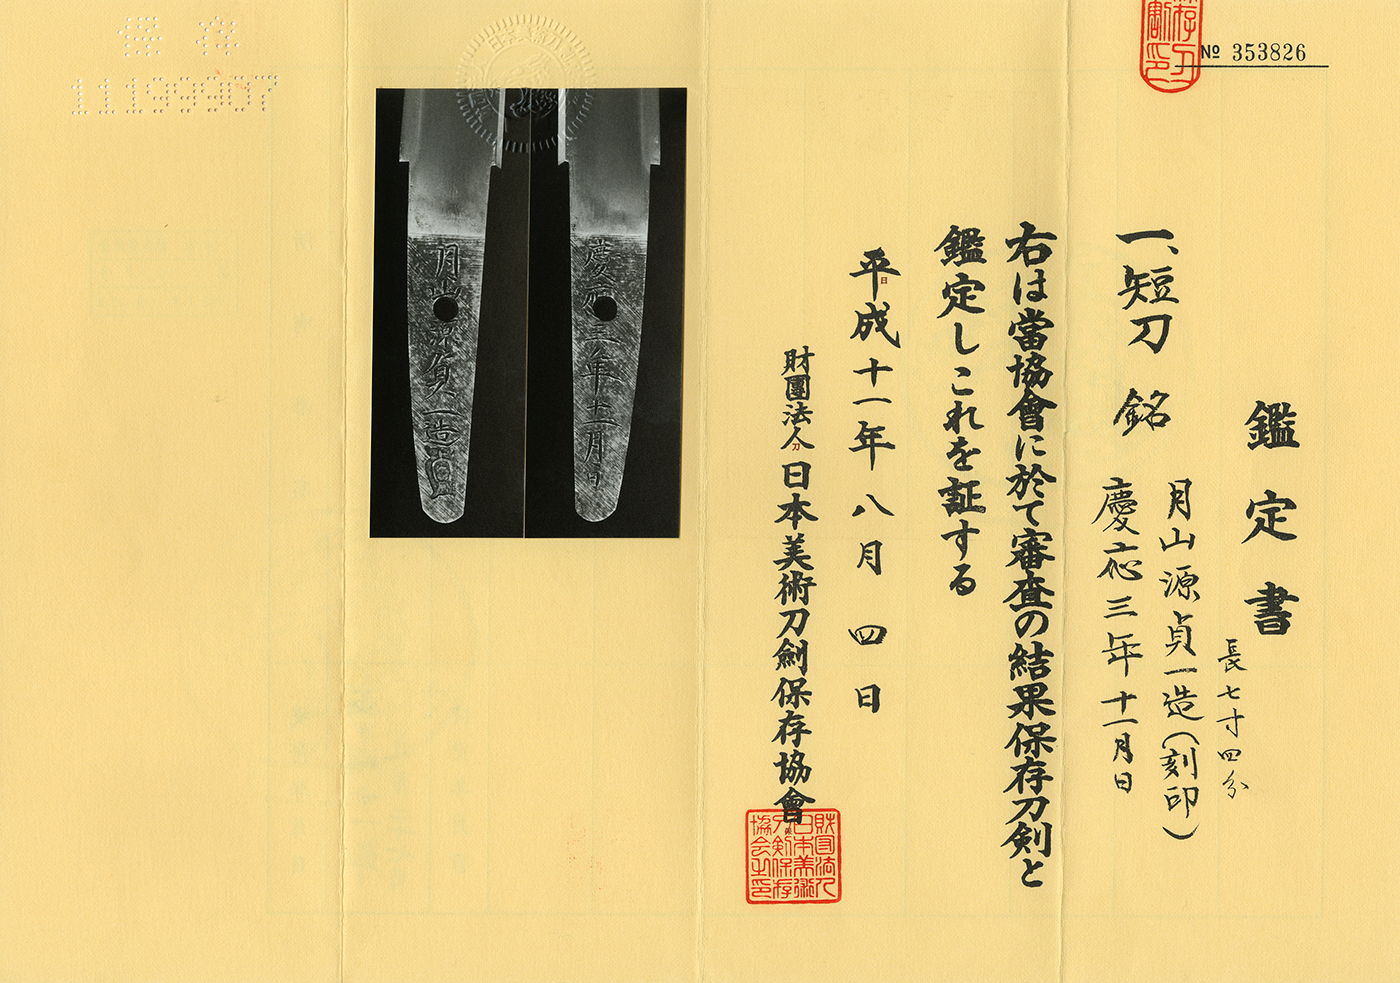 № 353826
鑑定書
一、短刀 銘 月山源貞一造(刻印)
慶応三年十一月日
長七寸四分
右は當協會に於て審査の結果保存刀剣と
鑑定しこれを証する
平成十一年八月四日
財團法人日本美術刀劍保存協會
財団法人
日本美術
刀剣保存
協会之印
慶應三年十一月日
月山源貞一造
保存
11199907